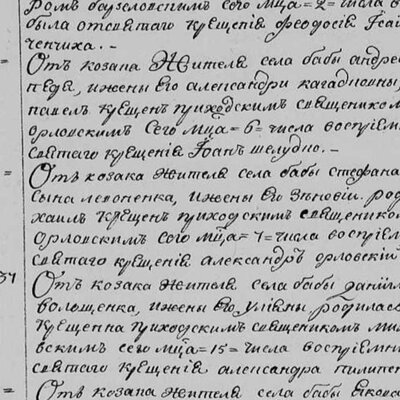 ромъ барзеловскимъ сего мца = 2 = числа
была отсвятаго крещенія феодосія
ченчиха. —
= Отъ козака Жителя села бабы андре
педы, ижены его александри
павелъ крещенъ приходскимъ священиком
орловскимъ Сего мца = 6 = числа восприем
святаго крещенія Іоанъ шелудко. —
= Отъ козака жителя села бабы стефана
сына леноненка, ижены Его Зѣновіи. род
хаилъ крещенъ приходскимъ священиком
орловскимъ сого мца = 7 = числа восприем
святаго крещенія александръ орловскій
37 Отъ козака жителя села бабы даніил
волощенка, ижены его улияны родилась
крещенна приходскимъ священикомъ ми
вскимъ сего мца = 15 = числа восприемн
святаго крещенія александра пилипе
= Отъ козака жителя села бабы якова